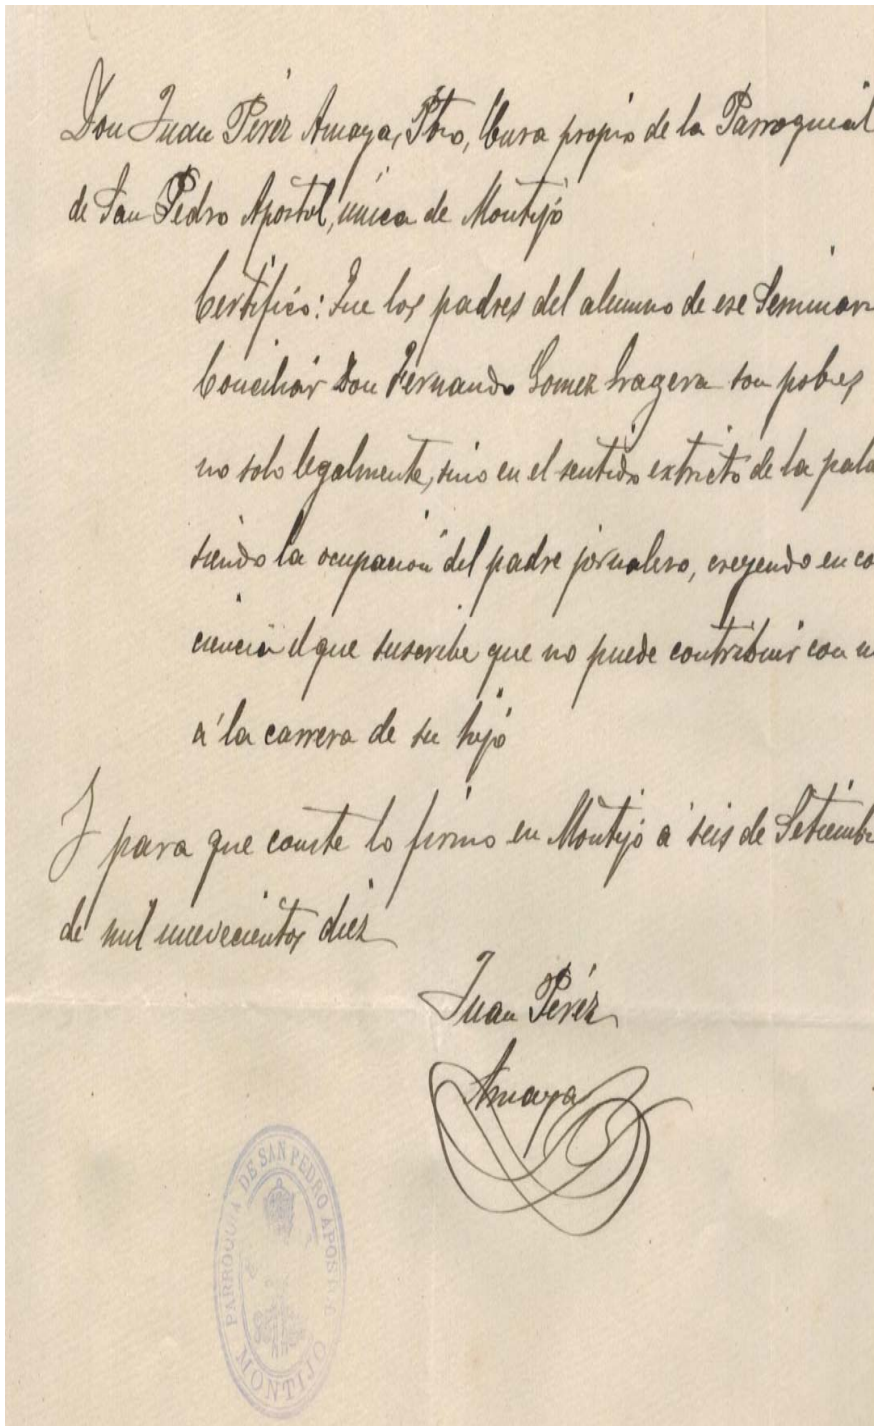 Don Juan Pérez Amaya, Pbro, Cura propio de la Parroquial
de San Pedro Apostol, única de Montijo
Certifico: Que los padres del alumno de ese Seminari
Conciliar Don Fernando Gomez Gragera son pobres
no solo legalmente, sino en el sentido extricto de la pala
siendo la ocupación del padre jornalero, creyendo en co
ciencia el que suscribe que no puede contribuir con n
á la carrera de su hijo
Y para que conste lo firmo en Montijo á seis de Setiembr
de mil nuevecientos diez
Juan Pérez
Amaya
PARROQUIA DE SAN PEDRO APOSTOL
MONTIJO